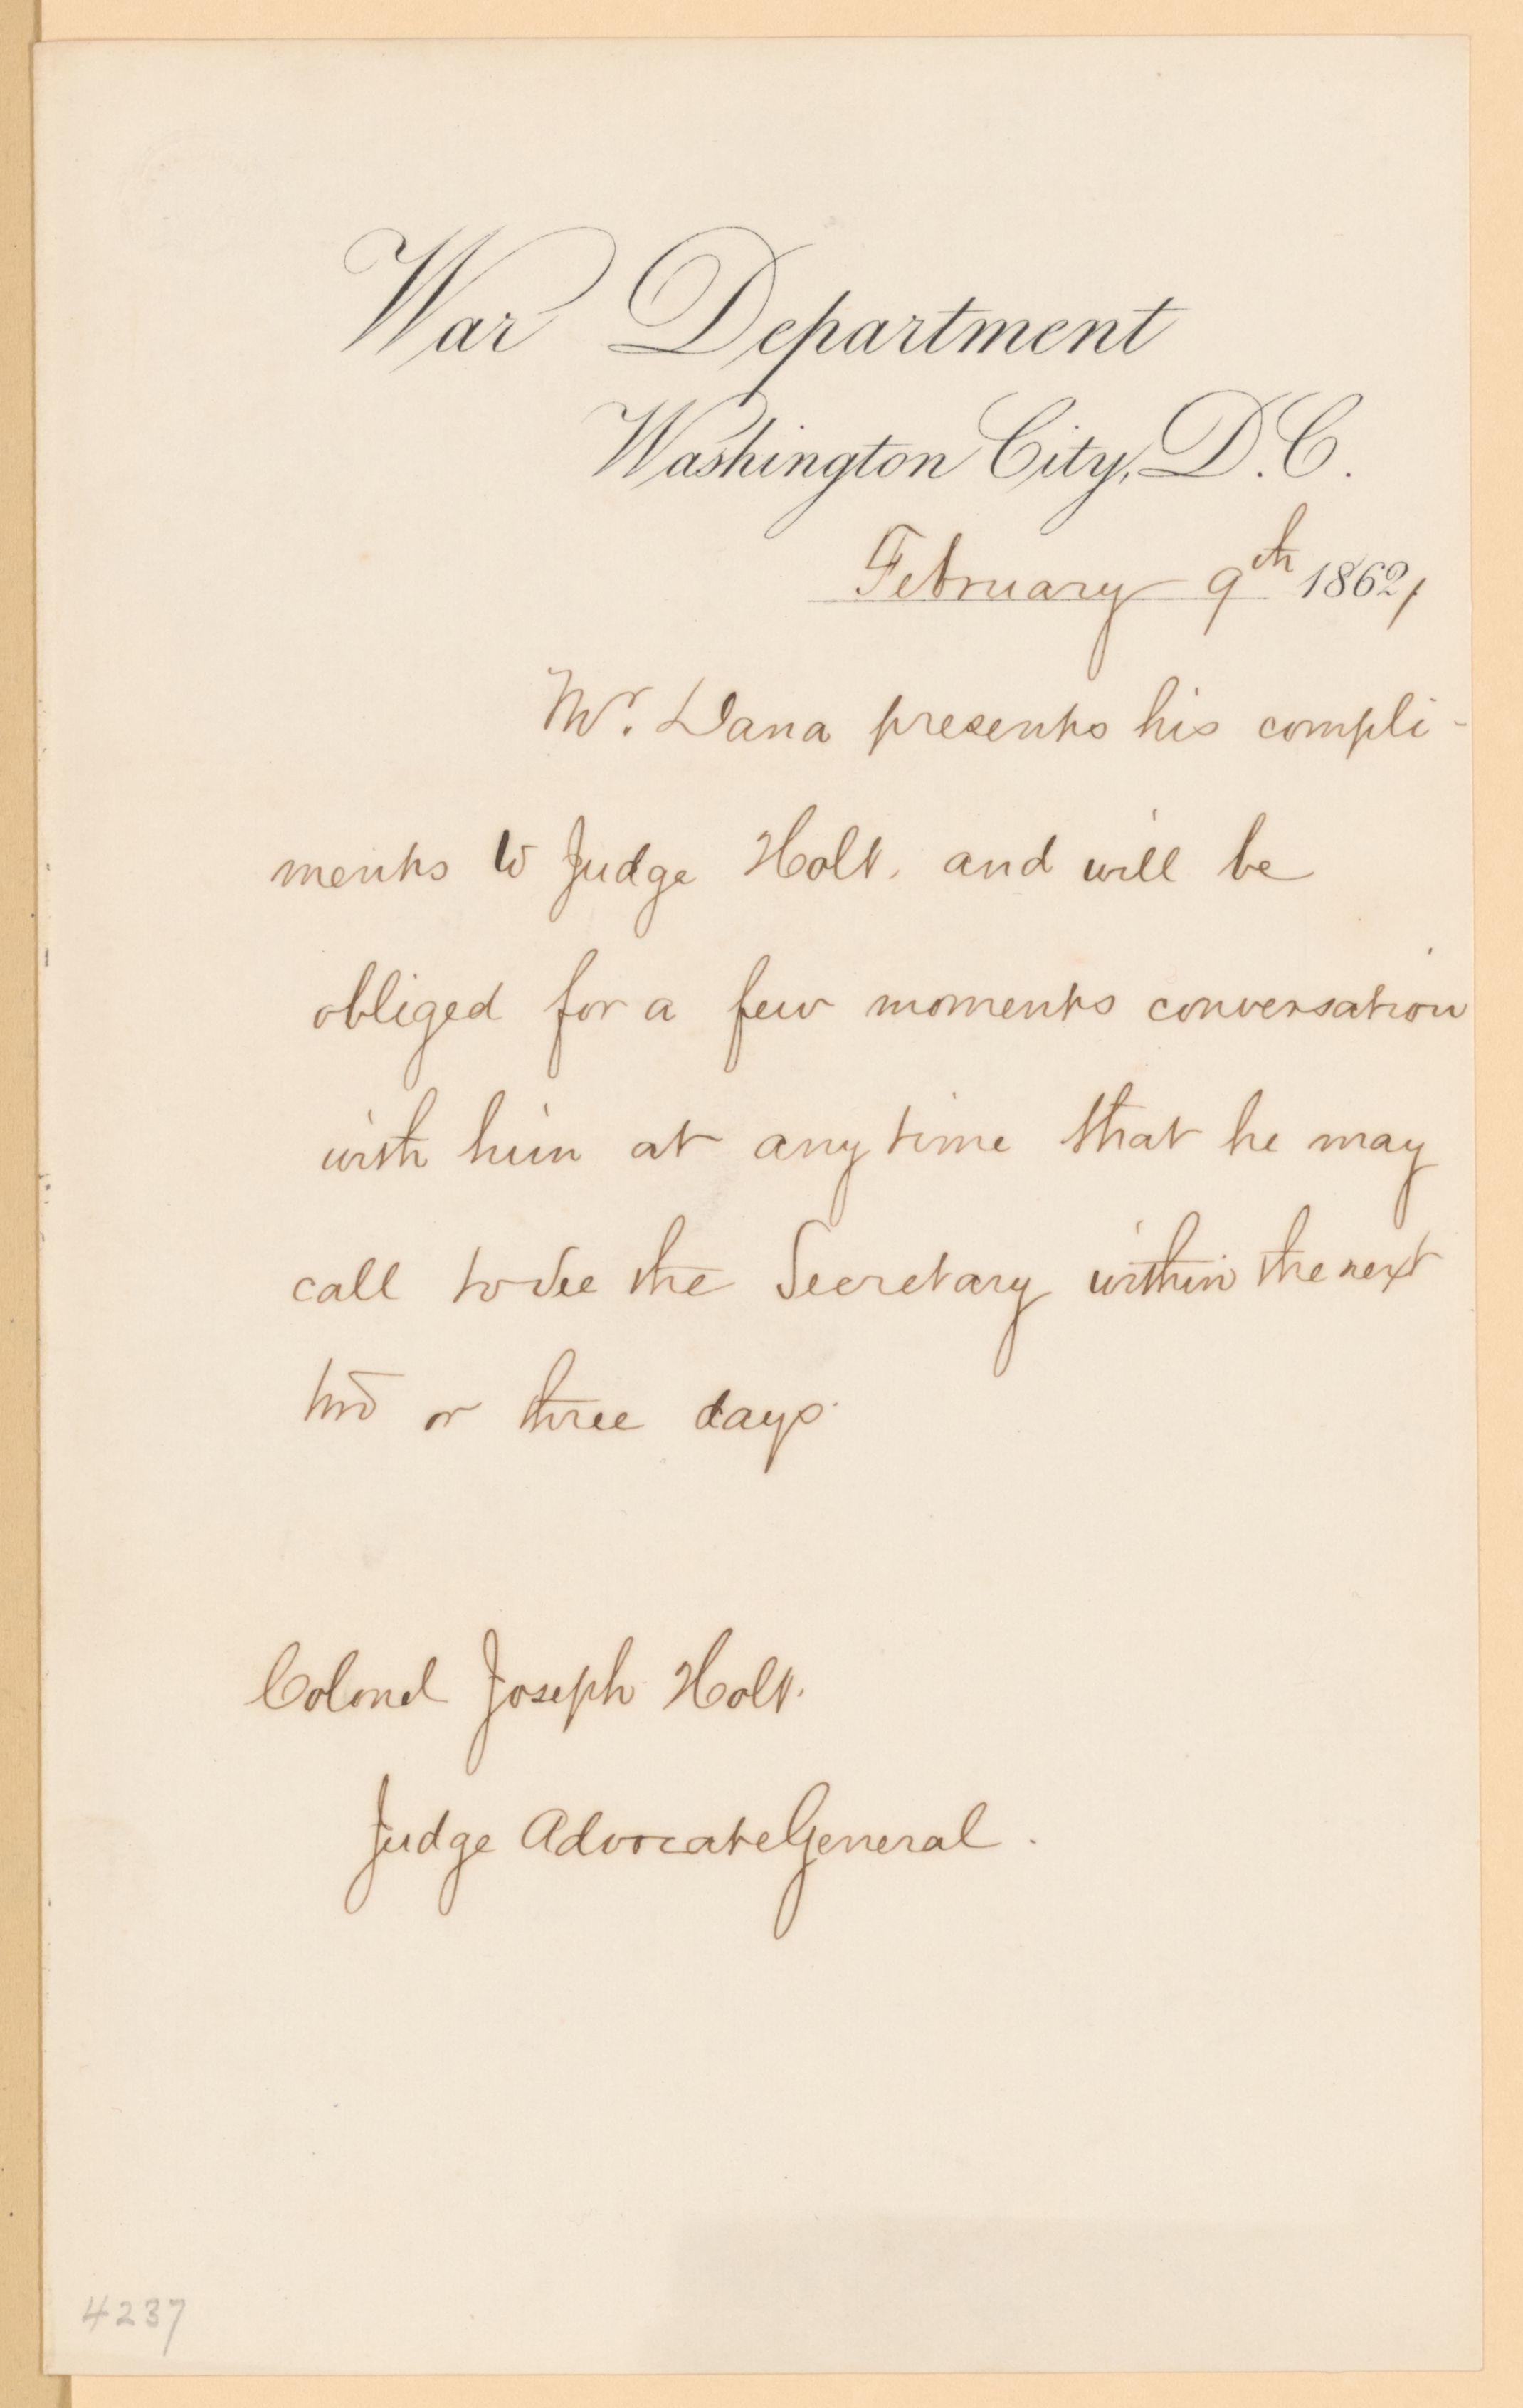 War Department
Washington City, D.C.
February 9th 1862,
Mr. Dana presents his compli-
ments to Judge Holt. and will be
obliged for a few moments conversation
with him at any time that he may
call to see the Secretary within the next
two or three days.
Colonel Joseph Holt.
Judge Advocate General.
4237